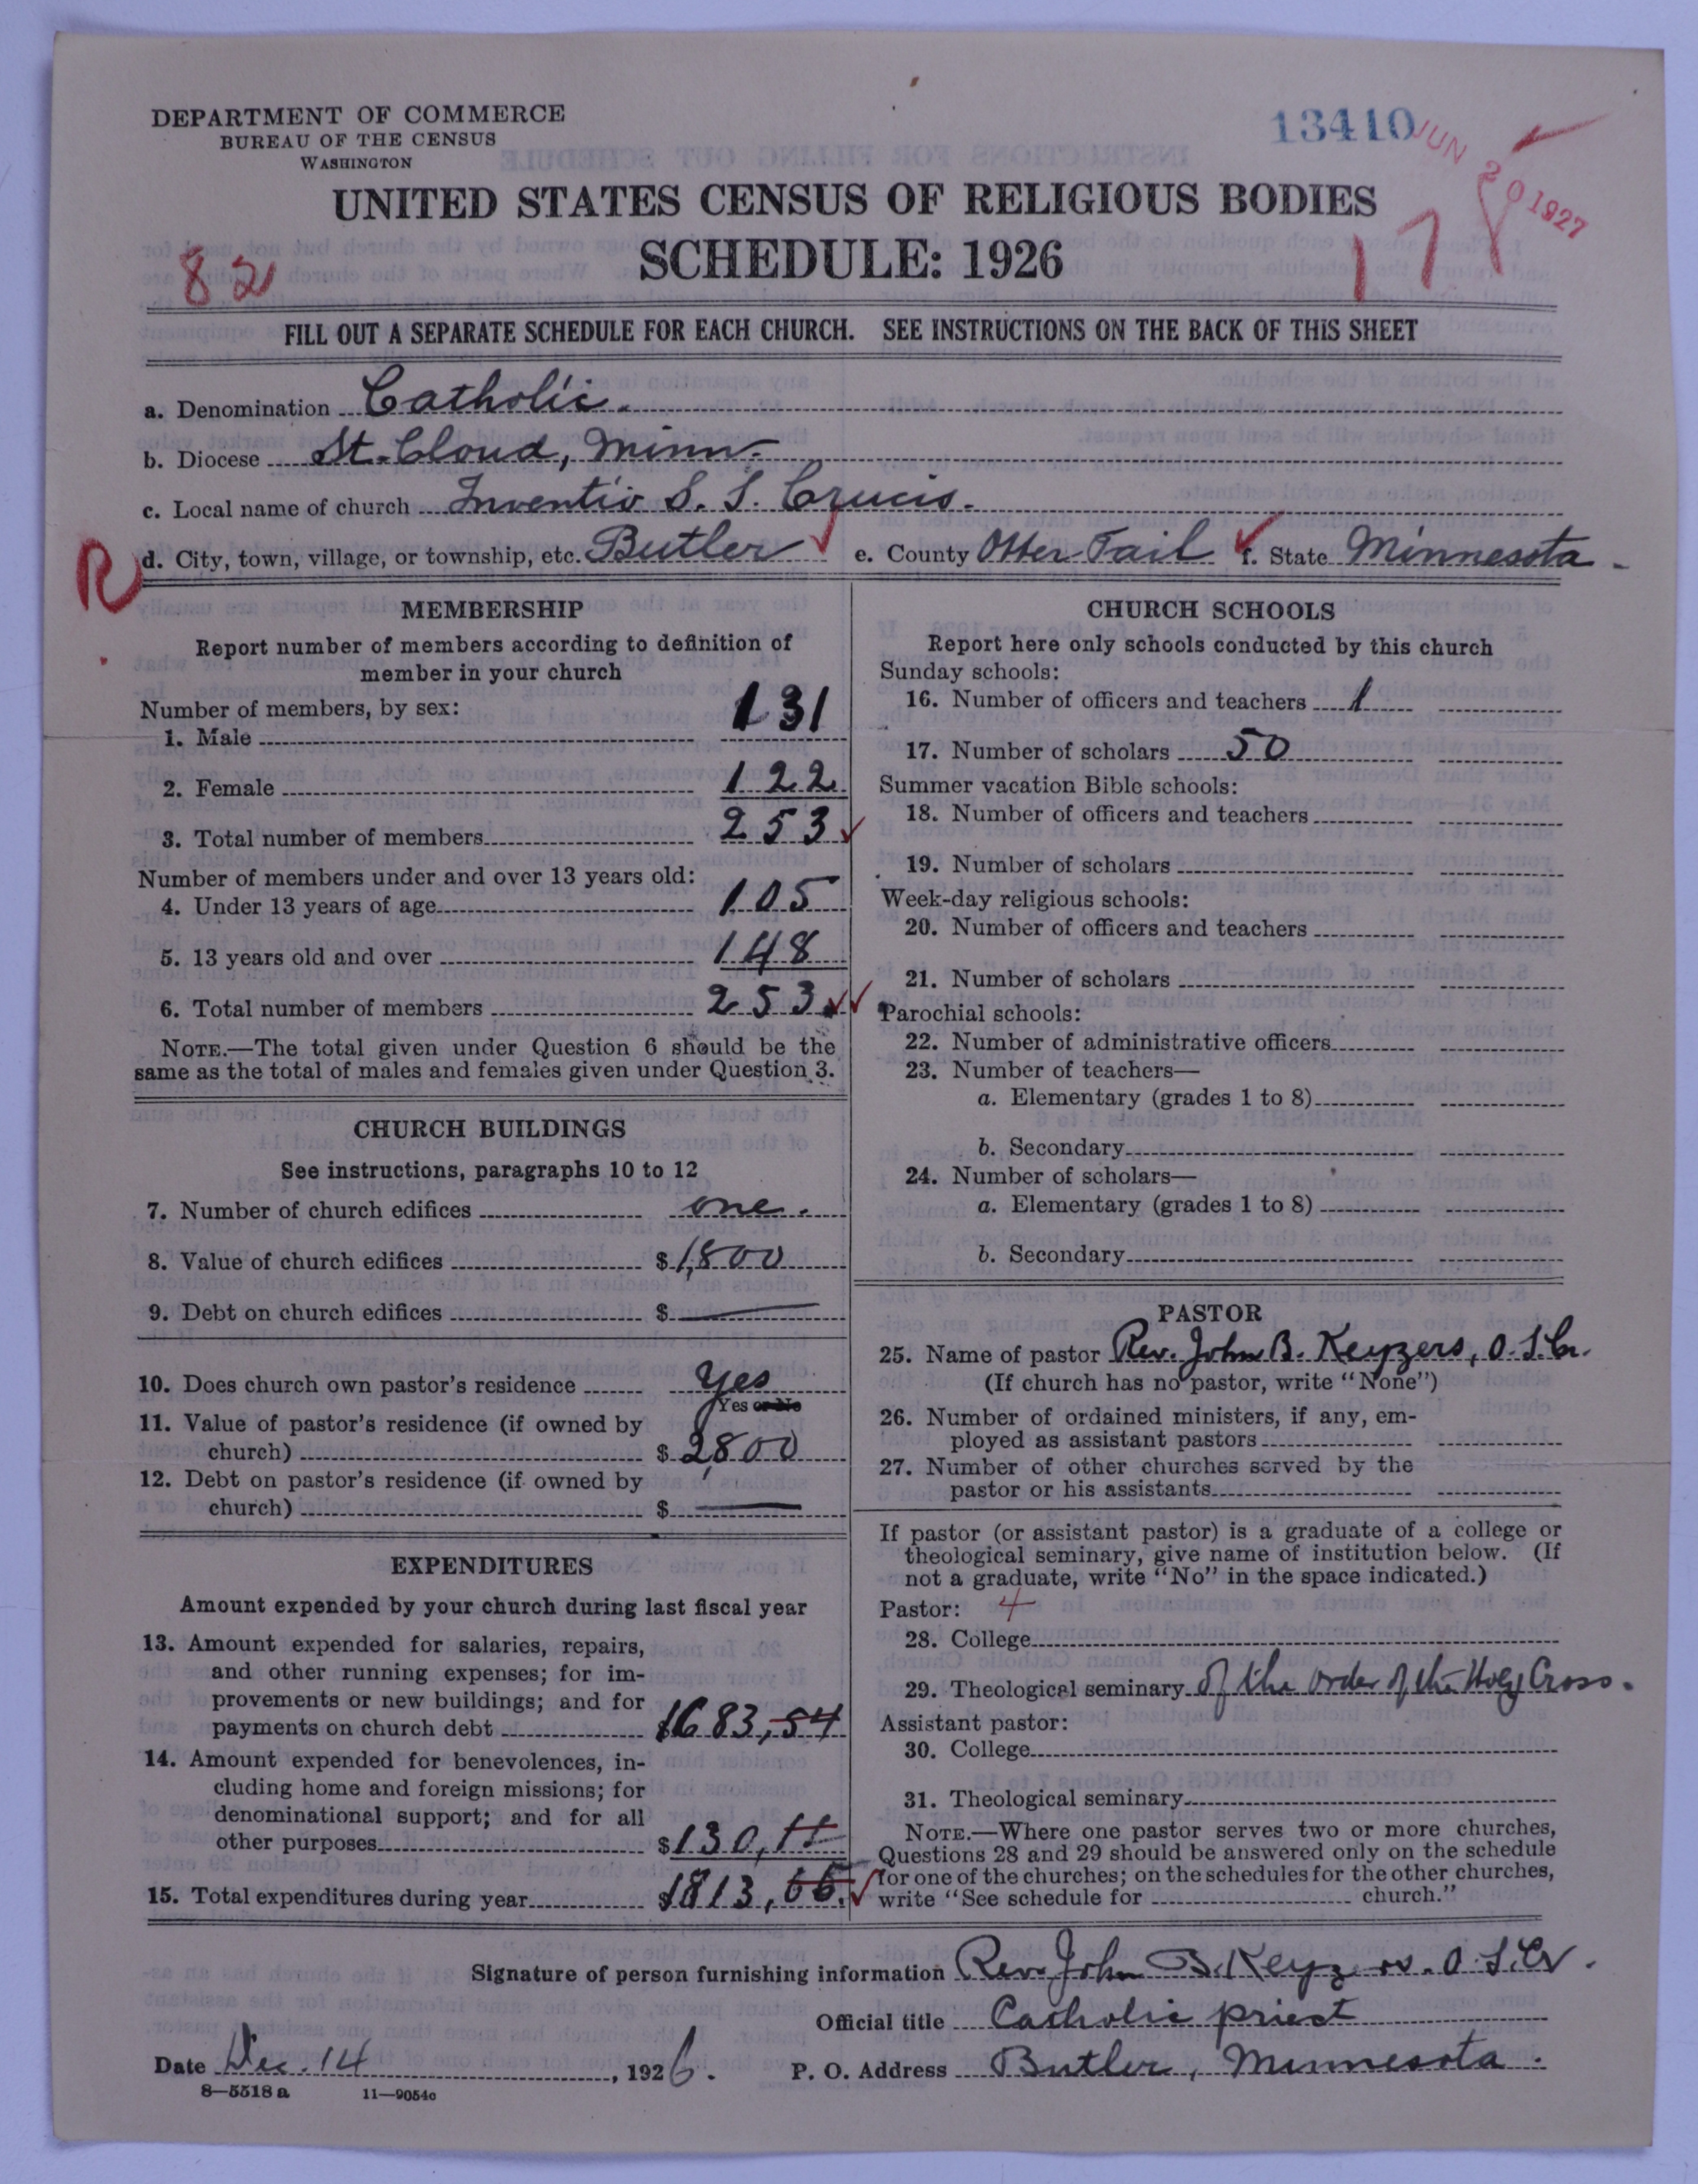 DEPARTMENT OF COMMERCE
BUREAU OF THE CENSUS
WASHINGTON
13410
JUN 20 1927
UNITED STATES CENSUS OF RELIGIOUS BODIES
SCHEDULE: 1926
82
17
FILL OUT A SEPARATE SCHEDULE FOR EACH CHURCH. SEE INSTRUCTIONS ON THE BACK OF THIS SHEET
a. Denomination Catholic.
b. Diocese St. Cloud, Minn.
c. Local name of church Inventio S. S. Crucis.
R
d. City, town, village, or township, etc. Butler e. County Otter Tail f. State Minnesota.
MEMBERSHIP
Report number of members according to definition of
member in your church
Number of members, by sex:
1. Male 131
2. Female 122
3. Total number of members 253
Number of members under and over 13 years old:
4. Under 13 years of age 105
5. 13 years old and over 148
6. Total number of members 253
NOTE.—The total given under Question 6 should be the
same as the total of males and females given under Question 3.
CHURCH BUILDINGS
See instructions, paragraphs 10 to 12
7. Number of church edifices one.
8. Value of church edifices $1,800
9. Debt on church edifices $ —
10. Does church own pastor's residence Yes
Yes or No
11. Value of pastor's residence (if owned by
church) $ 2,800
12. Debt on pastor's residence (if owned by
church) $ —
EXPENDITURES
Amount expended by your church during last fiscal year
13. Amount expended for salaries, repairs,
and other running expenses; for im-
provements or new buildings; and for
payments on church debt $1683,54
14. Amount expended for benevolences, in-
cluding home and foreign missions; for
denominational support; and for all
other purposes $130,11
15. Total expenditures during year $1813,66.
CHURCH SCHOOLS
Report here only schools conducted by this church
Sunday schools:
16. Number of officers and teachers 1
17. Number of scholars 50
Summer vacation Bible schools:
18. Number of officers and teachers
19. Number of scholars
Week-day religious schools:
20. Number of officers and teachers
21. Number of scholars
Parochial schools:
22. Number of administrative officers
23. Number of teachers—
a. Elementary (grades 1 to 8)
b. Secondary
24. Number of scholars—
a. Elementary (grades 1 to 8)
b. Secondary
PASTOR
25. Name of pastor Rev. John B. Keyzers, O.S.Cr.
(If church has no pastor, write "None")
26. Number of ordained ministers, if any, em-
ployed as assistant pastors
27. Number of other churches served by the
pastor or his assistants
If pastor (or assistant pastor) is a graduate of a college or
theological seminary, give name of institution below. (If
not a graduate, write "No" in the space indicated.)
Pastor: 4
28. College
29. Theological seminary of the order of the Holy Cross.
Assistant pastor:
30. College
31. Theological seminary
NOTE.—Where one pastor serves two or more churches,
Questions 28 and 29 should be answered only on the schedule
for one of the churches; on the schedules for the other churches,
write "See schedule for church."
Signature of person furnishing information Rev. John B. Keyzers. O.S.Cr.
Official title Catholic priest
Date Dec. 14, 1926. P. O. Address Butler, Minnesota.
8—5518 a 11—9054c